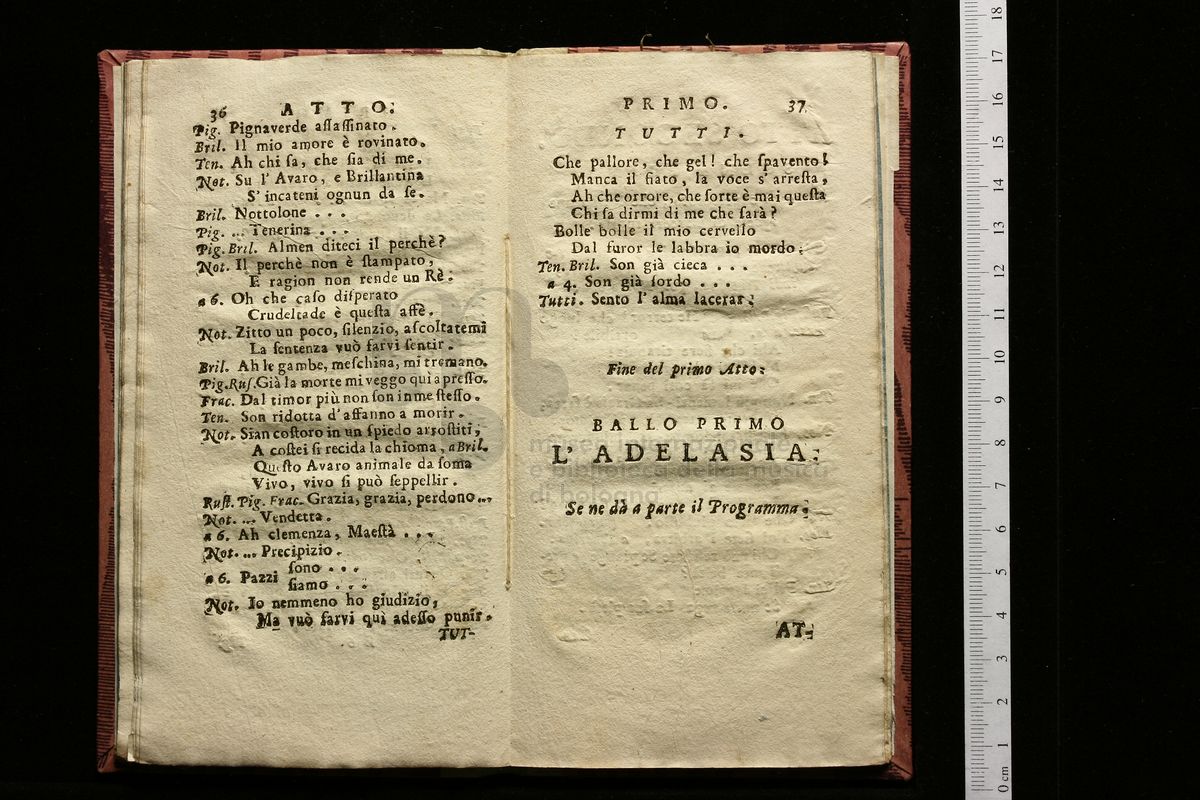 36 ATTO.
Pig. Pignaverde aſſaſſinato.
Bril. Il mio amore è rovinato.
Ten. Ah chi ſa, che ſia di me.
Not. Su l' Avaro, e Brillantina
S' incateni ognun da ſe.
Bril. Nottolone . . .
Pig. ... Tenerina . . .
Pig. Bril. Almen diteci il perchè?
Not. Il perchè non è ſtampato,
E ragion non rende un Rè.
a 6. Oh che caſo diſperato
Crudeltade è queſta affè.
Not. Zitto un poco, ſilenzio, aſcoltatemi
La ſentenza vuò farvi ſentir.
Bril. Ah le gambe, meſchina, mi tremano.
Pig. Ruſ. Già la morte mi veggo quì apreſſo.
Frac. Dal timor più non ſon in me ſteſſo.
Ten. Son ridotta d' affanno a morir.
Not. Sian coſtoro in un ſpiedo arroſtiti,
A coſtei ſi recida la chioma, a Bril.
Queſto Avaro animale da ſoma
Vivo, vivo ſi può ſeppellir.
Ruſt. Pig. Frac. Grazia, grazia, perdono...
Not. ... Vendetta.
a 6. Ah clemenza, Maeſtà . . .
Not. ... Precipizio.
ſono . . .
a 6. Pazzi
ſiamo . . .
Not. Io nemmeno ho giudizio,
Ma vuò farvi quì adeſſo punir.
TUT-
PRIMO. 37
TUTTI.
Che pallore, che gel! che ſpavento!
Manca il fiato, la voce s' arreſta,
Ah che orrore, che ſorte è mai queſta
Chi ſa dirmi di me che ſarà?
Bolle bolle il mio cervello
Dal furor le labbra io mordo.
Ten. Bril. Son già cieca . . .
a 4. Son già ſordo . . .
Tutti. Sento l' alma lacerar.
Fine del primo Atto.
BALLO PRIMO
L' ADELASIA.
museo internazionale
e biblioteca della musica
di bologna
Se ne dà a parte il Programma.
AT-
0 cm 1 2 3 4 5 6 7 8 9 10 11 12 13 14 15 16 17 18